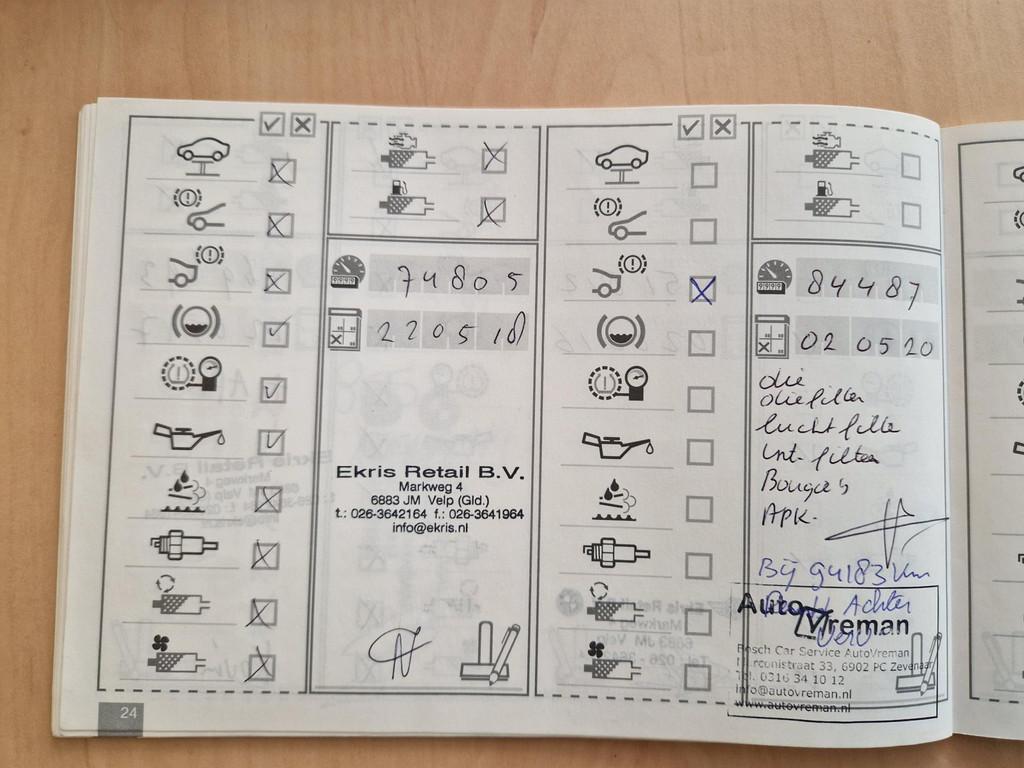 74805
220518
Ekris Retail B.V.
Markweg 4
6883 JM Velp (Gld.)
t.: 026-3642164 f.: 026-3641964
info@ekris.nl
24
84487
020520
olie
oliefilter
luchtfilte
int. filter
Bougies
APK.
Bij 94183 km
Achter
Auto Vreman
Bosch Car Service AutoVreman
Marconistraat 33, 6902 PC Zevenaar
Tel. 0316 34 10 12
info@autovreman.nl
www.autovreman.nl